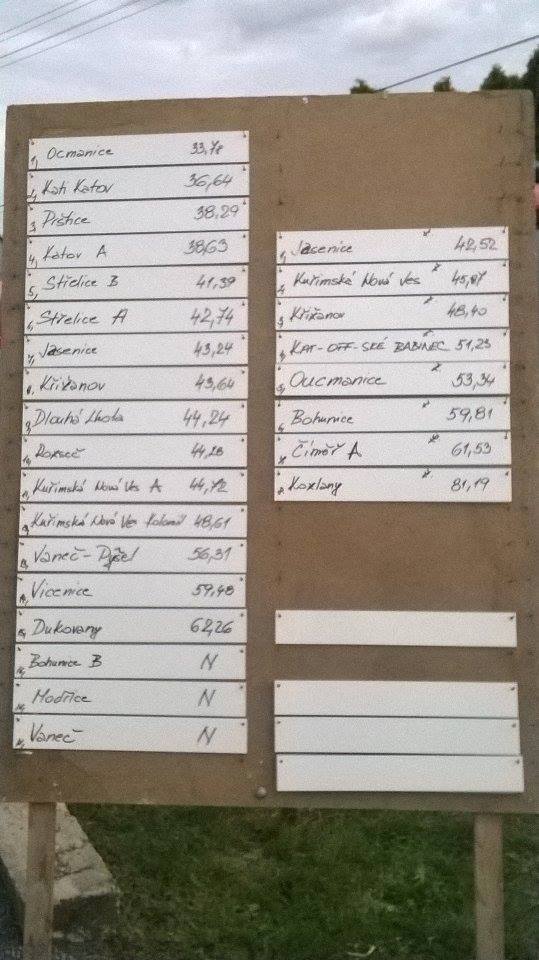 1, Ocmanice 33,78
2, Kati Katov 36,64
3, Pištice 38,29
4, Katov A 38,63
5, Střelice B 41,39
6, Střelice A 42,74
7, Jasenice 43,24
8, Křižanov 43,64
9, Dlouhá Lhota 44,24
10, 44,28
11, Kuřimská Nová Ves A 44,72
12, Kuřimská Nová Ves 48,61
13, Vaneč- 56,31
14, Vícenice 59,48
15, Dukovany 62,26
Bohunice B N
Modřice N
Vaneč N
1, Jasenice 42,52
2, Kuřimská Nová Ves 45,87
3, Křižanov 48,40
4, KAT-OFF-SKÉ BABINEC 51,23
5, Oucmanice 53,34
6, Bohunice 59,81
7, Číměř A 61,53
8, Koxlany 81,19